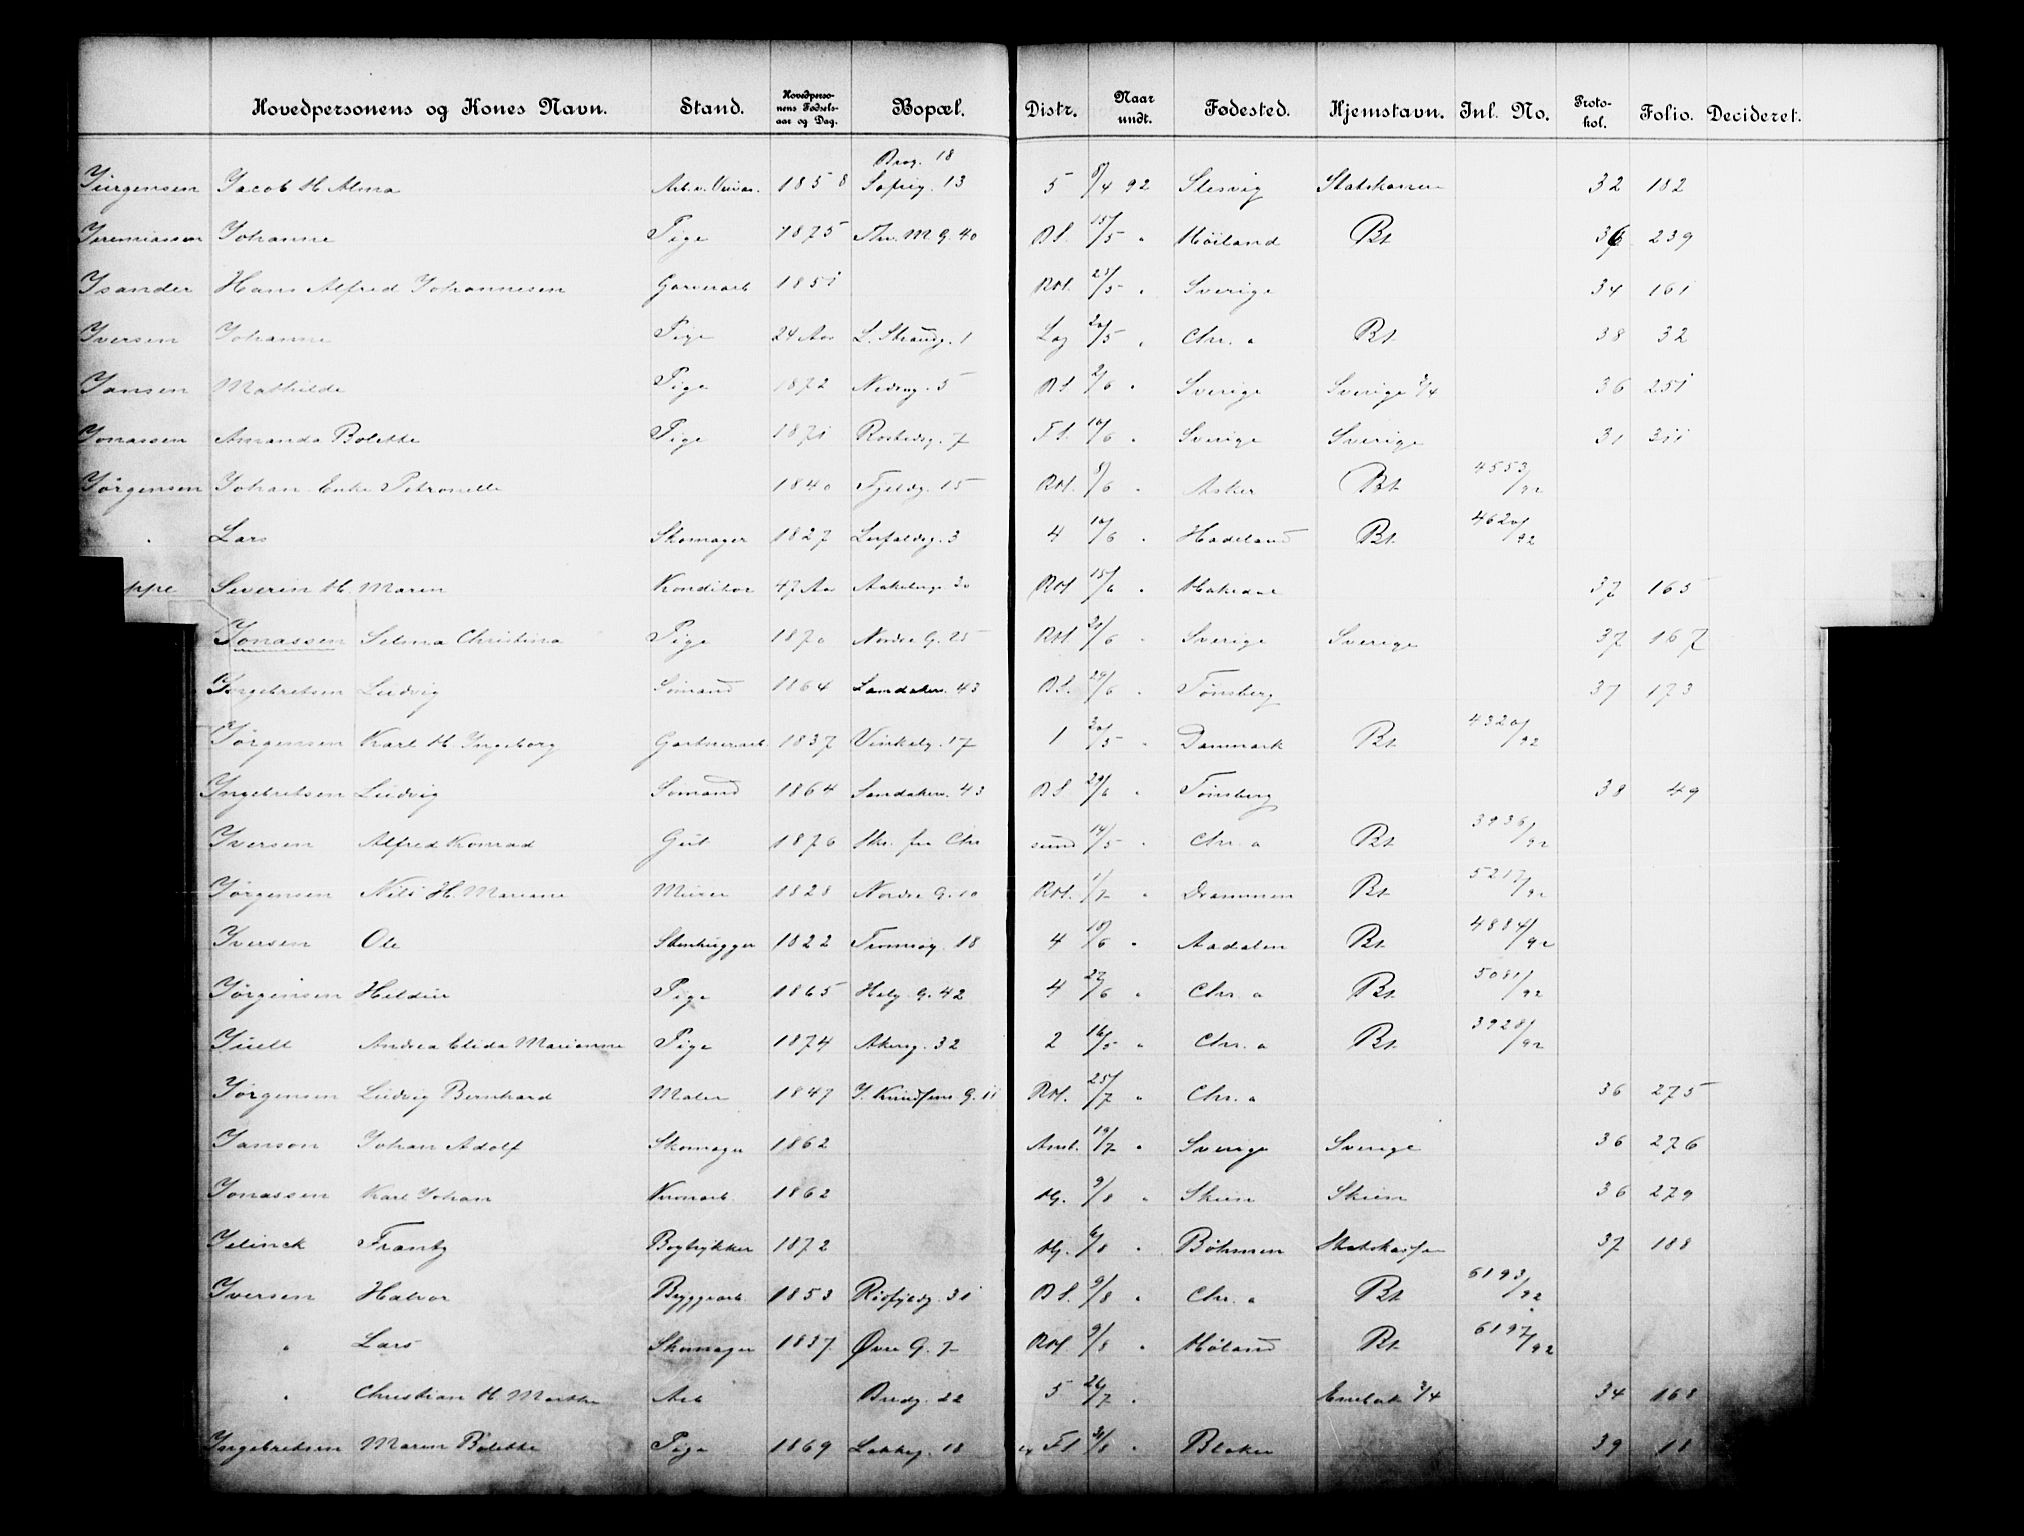 Hovedpersonens og Kones Navn. Stand. Hovedperso-nens Fødsels-aar og Dag. Bopæl. Distr. Naar undt. Fødested. Hjemstavn. Inl. No. Proto-kol. Folio. Decideret.
Brog. 18
Jürgensen Jacob H. Alma 1858 Sofieg. 13 5 8/4 92 Slesvig Statskassen 32 182
Jeremiassen Johanne Pige 1875 Thv. M G. 40 BS. 15/5 " Høiland Bt 36 239
Isander Hans Alfred Johannesen Garverarb 1851 RH. 23/5 " Sverige 34 161
Iversen Johanne Pige 24 Aar L. Strandg. 1 Lag 20/5 " Chr. a Bt 38 32
Jansen Mathilde Pige 1872 Nedreg. 5 BS 2/6 " Sverige Sverige 3/4 36 251
Jonassen Amanda Bolette Pige 1871 Rostedsg. 7 FS. 10/6 " Sverige Sverige 31 311
Jørgensen Johan Enke Petronelle 1840 Fjeldg. 15 RH. 8/6 " Asker Bt 4553/92
" Lars Skomager 1827 Leirfaldsg. 3 4 10/6 " Hadeland Bt 4620/92
ppe Severin H. Maren Konditor 47 Aar Aakebergv. 30 RH 15/6 " Hakedal 37 165
Jonassen Selma Christina Pige 1870 Nordre G. 25 RH 21/6 " Sverige Sverige 37 167
Ingebretsen Ludvig Sømand 1864 Sandakerv. 43 BS. 29/6 " Tønsberg 37 173
Jørgensen Karl H. Ingeborg Gartnerarb. 1837 Vinkelg. 17 1 30/5 " Danmark Bt 4320/92
Ingebretsen Ludvig Sømand 1864 Sandakerv. 43 BS 29/6 " Tønsberg 38 49
Iversen Alfred Konrad Gut 1876 fra Chr sund 14/5 " Chr. a Bt 3936/92
Jørgensen Nils H. Mariane Murer 1828 Nordre G. 10 RH. 1/7 " Drammen Bt 5217/92
Iversen Ole Stenhugger 1822 Tromsøg. 18 4 18/6 " Aadalen Bt 4884/92
Jørgensen Heldur Pige 1865 Helg. G. 42 4 27/6 " Chr. a Bt 5081/92
Juell Andrea Elida Marianne Pige 1874 Akersg. 32 2 16/5 " Chr. a Bt 3928/92
Jørgensen Ludvig Bernhard Maler 1847 J. Knudsens G. 11 RH. 25/7 " Chr. a 36 275
Janson Johan Adolf Skomager 1862 Amt. 19/7 " Sverige Sverige 36 276
Jonassen Karl Johan 1862 Hj. 9/8 " Skien Skien 36 279
Jelinek Frantz Bogtrykker 1872 Hj. 6/8 " Bøhmen Statskassen 37 188
Iversen Halvor Byggearb. 1853 Risfjeldg. 31 BS. 9/8 " Chr. a Bt 6193/92
" Lars Skomager 1837 Øvre G. 7 RH 9/8 " Høland Bt 6197/92
" Christian H. Marthe Arb Bredg. 22 5 26/7 " Enebak 3/4 34 168
Ingebretsen Maren Bolette Pige 1869 Lakkeg. 18 FS 31/8 " Blaker 39 18